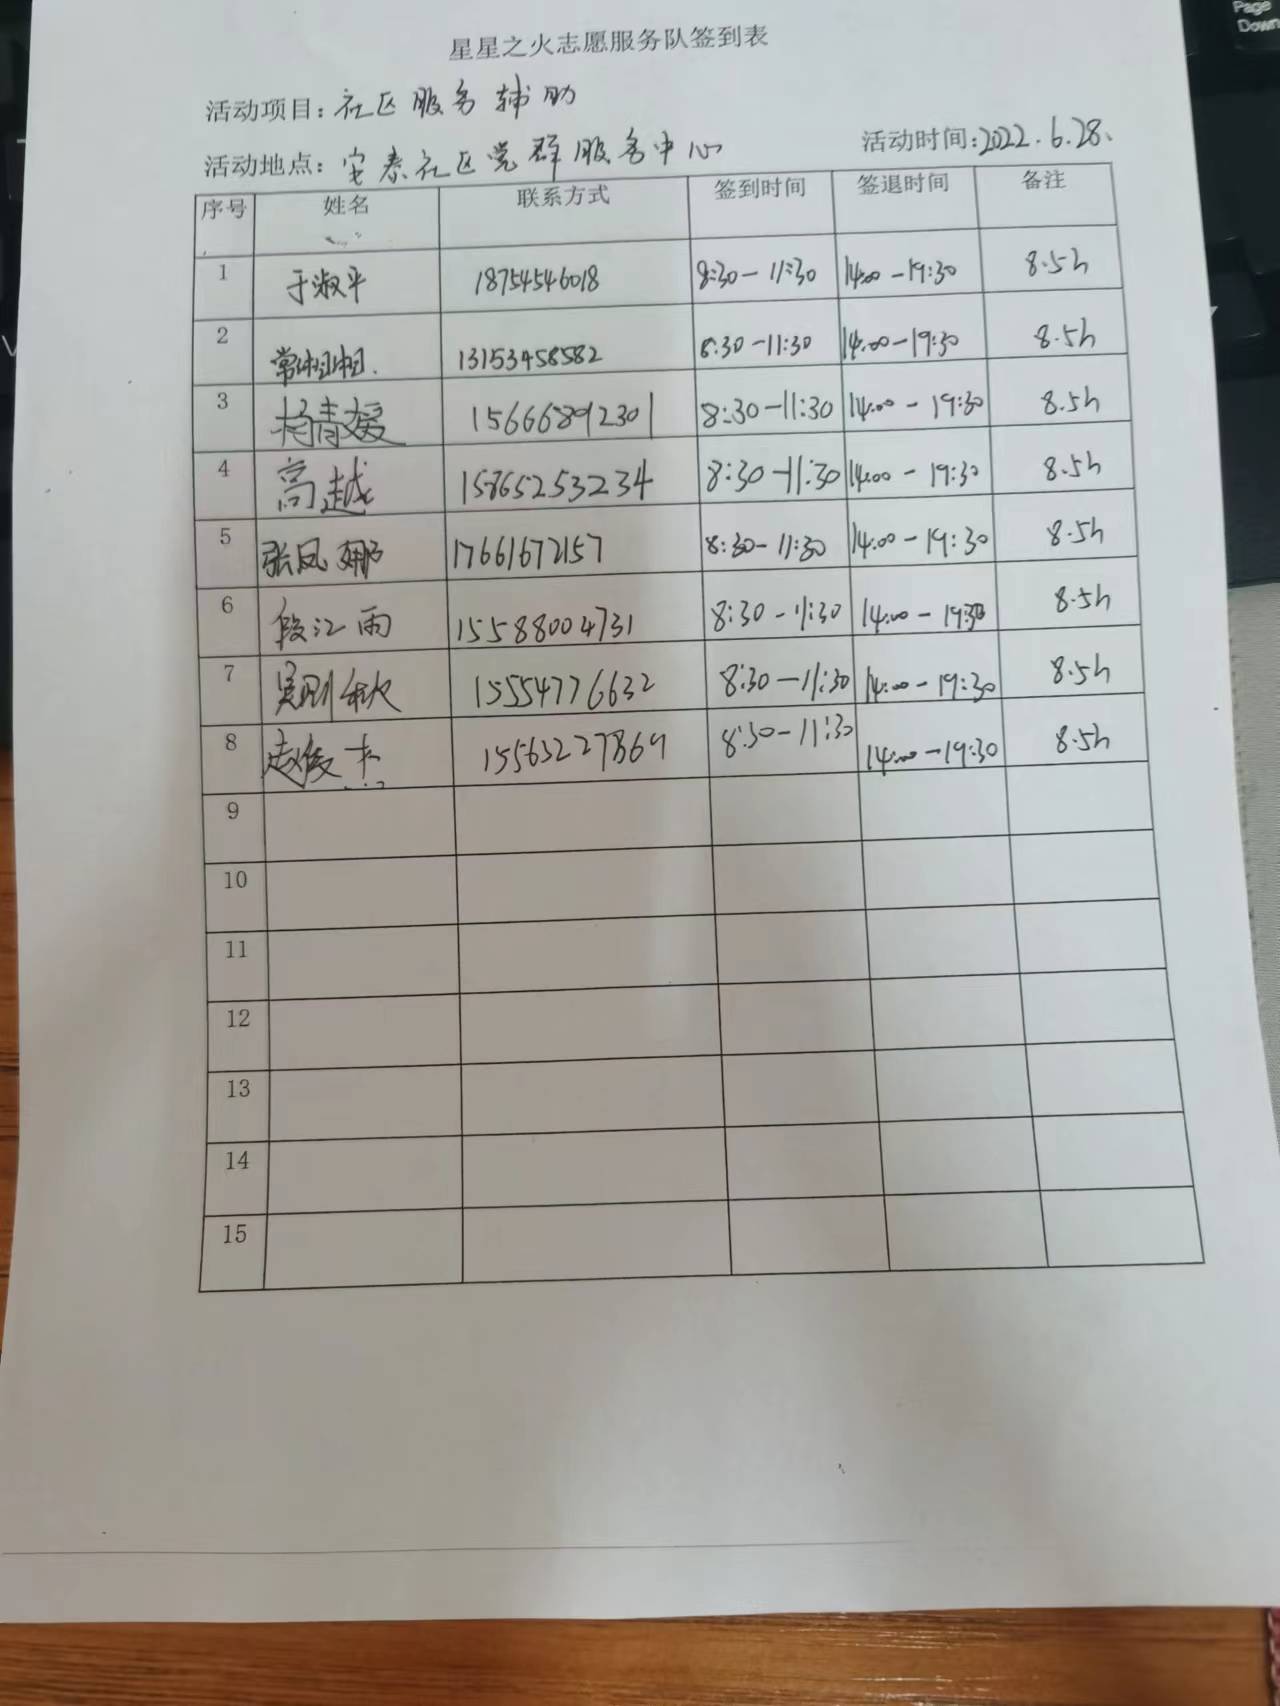 星星之火志愿服务队签到表
活动项目：社区服务辅助
活动地点：安泰社区党群服务中心 活动时间：2022.6.28、
序号 姓名 联系方式 签到时间 签退时间 备注
1 于淑平 18754546018 8:30-11:30 14:00-19:30 8.5h
2 常相相. 13153458582 8:30-11:30 14:00-19:30 8.5h
3 杨青媛 15666892301 8:30-11:30 14:00-19:30 8.5h
4 高越 15865253234 8:30-11:30 14:00-19:30 8.5h
5 张凤娜 17661672157 8:30-11:30 14:00-19:30 8.5h
6 段江雨 15588004731 8:30-11:30 14:00-19:30 8.5h
7 15554776632 8:30-11:30 14:00-19:30 8.5h
8 赵俊杰 15563227869 8:30-11:30 14:00-19:30 8.5h
9
10
11
12
13
14
15
Page
Down